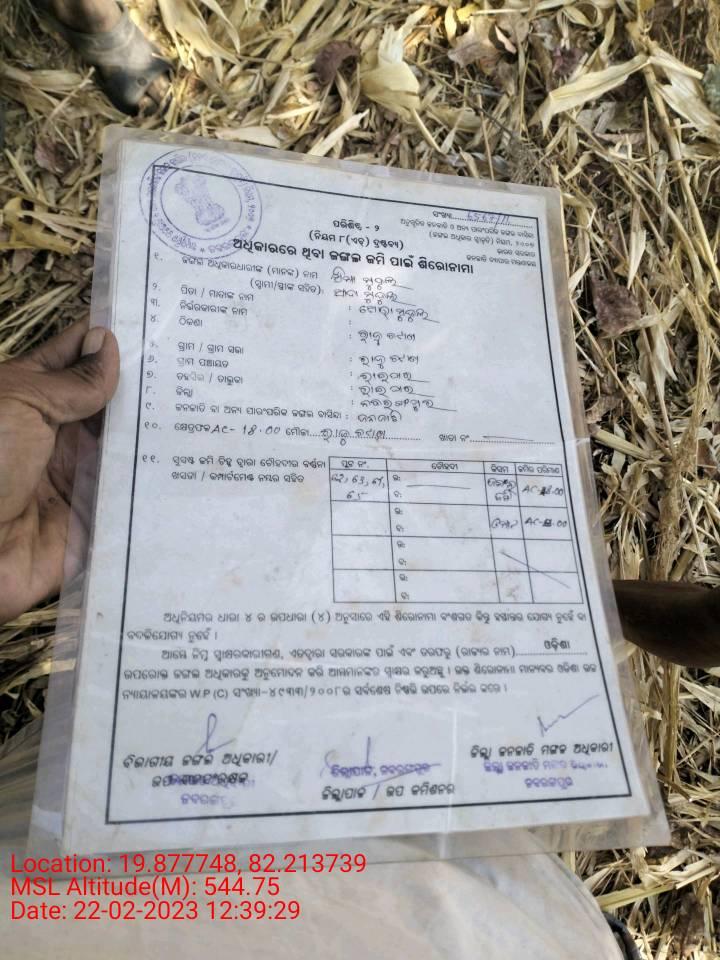 ସଂଖ୍ୟା
ପରିଶିଷ୍ଟ - ୨
(ନିୟମ ୮(ଏଚ୍) ଦ୍ରଷ୍ଟବ୍ୟ)
ଅନୁସୂଚିତ ଜନଜାତି ଓ ଅନ୍ୟ ପାରଂପରିକ ଜଙ୍ଗଲ ବାସିନ୍ଦା
(ଜଙ୍ଗଲ ଅଧିକାର ସ୍ୱୀକୃତି) ନିୟମ, ୨୦୦୭
ଭାରତ ସରକାର
ଜନଜାତି ବ୍ୟାପାର ମନ୍ତ୍ରଣାଳୟ
ଅଧିକାରରେ ଥିବା ଜଙ୍ଗଲ ଜମି ପାଇଁ ଶିରୋନାମା
୧. ଜଙ୍ଗଲ ଅଧିକାରଧାରୀଙ୍କ (ମାନଙ୍କ) ନାମ
(ସ୍ୱାମୀ/ସ୍ତ୍ରୀଙ୍କ ସହିତ)
୨. ପିତା / ମାତାଙ୍କ ନାମ :
୩. ନିର୍ଭରକାରୀଙ୍କ ନାମ :
୪. ଠିକଣା :
୫. ଗ୍ରାମ / ଗ୍ରାମ ସଭା :
୬. ଗ୍ରାମ ପଞ୍ଚାୟତ :
୭. ତହସିଲ / ତାଲୁକା : ରାଇଘର
୮. ଜିଲ୍ଲା : ନବରଙ୍ଗପୁର
୯. ଜନଜାତି ବା ଅନ୍ୟ ପାରଂପରିକ ଜଙ୍ଗଲ ବାସିନ୍ଦା : ଜନଜାତି
୧୦. କ୍ଷେତ୍ରଫଳ AC- 18.00 ମୌଜା ଖାତା ନଂ
୧୧. ସୁସ୍ପଷ୍ଟ ଜମି ଚିହ୍ନ ଦ୍ୱାରା ଚୌହଦୀର ବର୍ଣ୍ଣନା
ଖସଡା / କମ୍ପାର୍ଟମେଣ୍ଟ ନମ୍ବର ସହିତ
ପ୍ଲଟ ନଂ. ଚୌହଦୀ କିସମ ଜମିର ପରିମାଣ
62, 63, 64, ଉ: ଜଙ୍ଗଲ AC-18.00
65 ଦ: ଜମି
ଉ:
ଦ:
ଉ:
ଦ:
ଉ:
ଦ:
ଅଧିନିୟମର ଧାରା ୪ ର ଉପଧାରା (୪) ଅନୁସାରେ ଏହି ଶିରୋନାମା ବଂଶଗତ କିନ୍ତୁ ହସ୍ତାନ୍ତର ଯୋଗ୍ୟ ନୁହେଁ ବା
ବଦଳିଯୋଗ୍ୟ ନୁହେଁ ।
ଆମ୍ଭେ ନିମ୍ନ ସ୍ୱାକ୍ଷରକାରୀଗଣ, ଏତଦ୍ୱାରା ସରକାରଙ୍କ ପାଇଁ ଏବଂ ତରଫରୁ (ରାଜ୍ୟର ନାମ) ଓଡ଼ିଶା
ଉପରୋକ୍ତ ଜଙ୍ଗଲ ଅଧିକାରକୁ ଅନୁମୋଦନ କରି ଆମ୍ଭମାନଙ୍କର ସ୍ୱାକ୍ଷର କରୁଅଛୁ । ଉକ୍ତ ଶିରୋନାମା ମାନ୍ୟବର ଓଡ଼ିଶା ଉଚ୍ଚ
ନ୍ୟାୟାଳୟଙ୍କର W.P (C) ସଂଖ୍ୟା-୪୯୩୩/୨୦୦୮ର ସର୍ବଶେଷ ନିଷ୍ପତ୍ତି ଉପରେ ନିର୍ଭର କରେ ।
ବିଭାଗୀୟ ଜଙ୍ଗଲ ଅଧିକାରୀ/
ଉପ ବନସଂରକ୍ଷକ
ନବରଙ୍ଗପୁର
ଜିଲ୍ଲାପାଳ, ନବରଙ୍ଗପୁର
ଜିଲ୍ଲାପାଳ / ଉପ କମିଶନର
ଜିଲ୍ଲା ଜନଜାତି ମଙ୍ଗଳ ଅଧିକାରୀ
ଜିଲ୍ଲା ଜନଜାତି ମଙ୍ଗଳ ଅଧିକାରୀ,
ନବରଙ୍ଗପୁର
Location: 19.877748, 82.213739
MSL Altitude(M): 544.75
Date: 22-02-2023 12:39:29